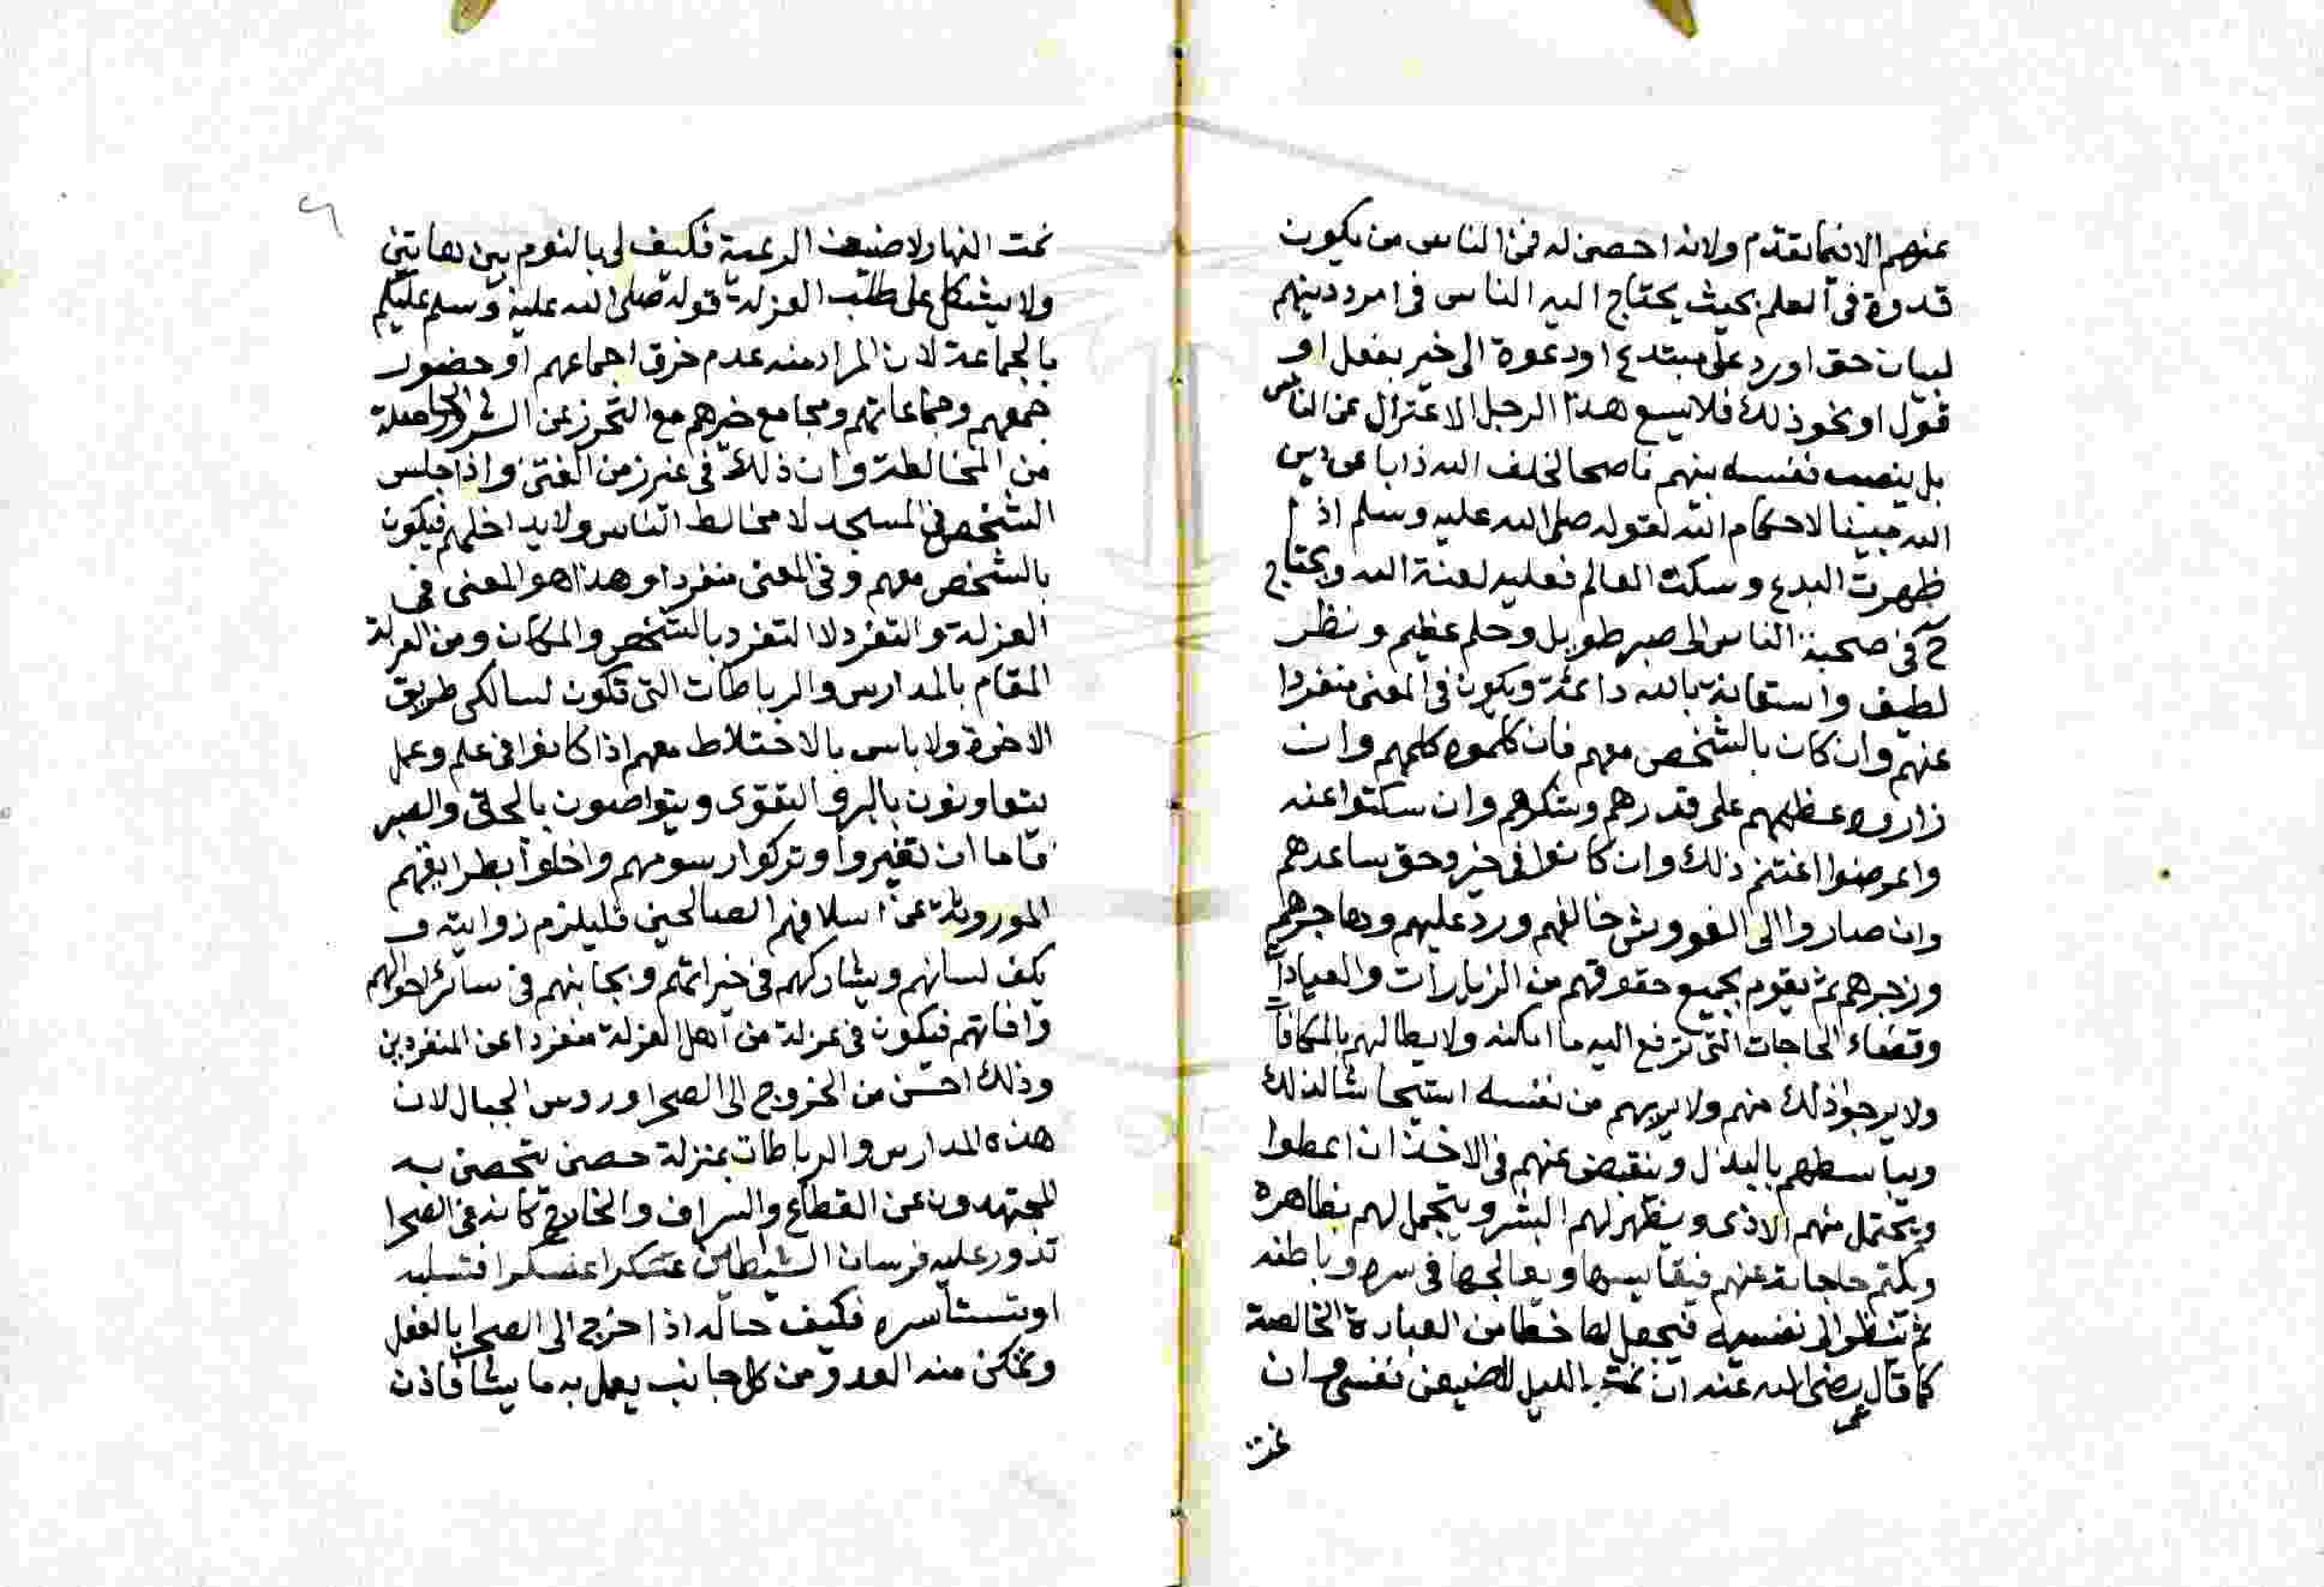 عنهم الا فيما تقدم ولانه احصن له فمن الناس من يكون
قدوة في العلم بحيث يحتاج اليه الناس في امر دينهم
لبيان حق او رد على مبتدع او دعوة الى خير بفعل او
قول او نحو ذلك فلا يسع هذا الرجل الاعتزال عن الناس
بل ينصب نفسه بينهم ناصحا لخلف الله ذابا عن دين
الله مبينا لاحكام الله لقوله صلى الله عليه وسلم اذا
ظهرت البدع وسكت العالم فعليه لعنة الله ويحتاج
في صحبة الناس الى صبر طويل وحلم عظيم ونظر
لطيف واستعانة بالله دائمة ويكون في المعنى منفردا
عنهم وان كان بالشخص معهم فان كلموه كلمهم وان
زاروه عظمهم على قدرهم وشكرهم وان سكتوا عنه
واعرضوا اغتنم ذلك وان كانوا في خير وحق ساعدهم
وان صاروا الى لغو وشر خالفهم ورد عليهم وهاجرهم
وزجرهم ثم يقوم بجميع حقوقهم من الزيارات والعيادات
وقضاء الحاجات التي ترفع اليه ما امكنه ولا يطالبهم بالمكافآت
ولا يرجو ذلك منهم ولا يريهم من نفسه استيحاشا لذلك
ويباسطهم بالبذل وينقبض عنهم في الاخذ ان اعطوا
ويحتمل منهم الاذى ويظهر لهم البشر ويتجمل لهم بظاهره
ويكتم حاجاته عنهم فيقاسيها ويعالجها في سره وباطنه
ثم تنظر الى نفسه فيجعل لها حظا من العبادة الخالصة
كما قال عمر رضي الله عنه ان نمت بالليل لاضيعن نفسي وان
نمت
نمت النهار لاضيعن الرعية فكيف لي بالنوم بين هاتين
ولا يشكل على طلب العزلة قوله صلى الله عليه وسلم عليكم
بالجماعة لان المراد منه عدم خرق اجماعهم او حضور
جمعهم وجماعاتهم ومجامع خيرهم مع التحرز عن الشرور الحاصلة
من المخالطة وان ذلك في غير زمن الفتن واذا جلس
الشخص في المسجد لا مخالط الناس ولا يداخلهم فيكون
بالشخص معهم وفي المعنى منفردا وهذا هو المعنى في
العزلة والتفرد لا التفرد بالشخص والمكان ومن العزلة
المقام بالمدارس والرباطات التي تكون لسالكي طريق
الاخرة ولا باس بالاختلاط معهم اذا كانوا في علم وعمل
يتعاونون بالبر والتقوى ويتواصون بالحق والصبر
فاما ان تغيروا وتركوا رسومهم واخلوا بطرايقهم
الموروثة عن اسلافهم الصالحين فليلزم زوايته و
يكف لسانهم ويشاركهم في خيراتهم ويجانبهم في سائر احوالهم
وافاتهم فيكون في عزلة من اهل العزلة منفردا عن المنفردين
وذلك احسن من الخروج الى الصحرا وروس الجبال لان
هذه المدارس والرباطات بمنزلة حصن يتحصن به
المجتهدون عن القطاع والسراق والخارج كانه في الصحرا
تدور عليه فرسان الشيطين عسكرا عسكرا فتسلبه
او تستأسره فكيف حاله اذا خرج الى الصحرا بالفعل
وتمكن منه العدو من كل جانب يعمل به ما يشا فاذن